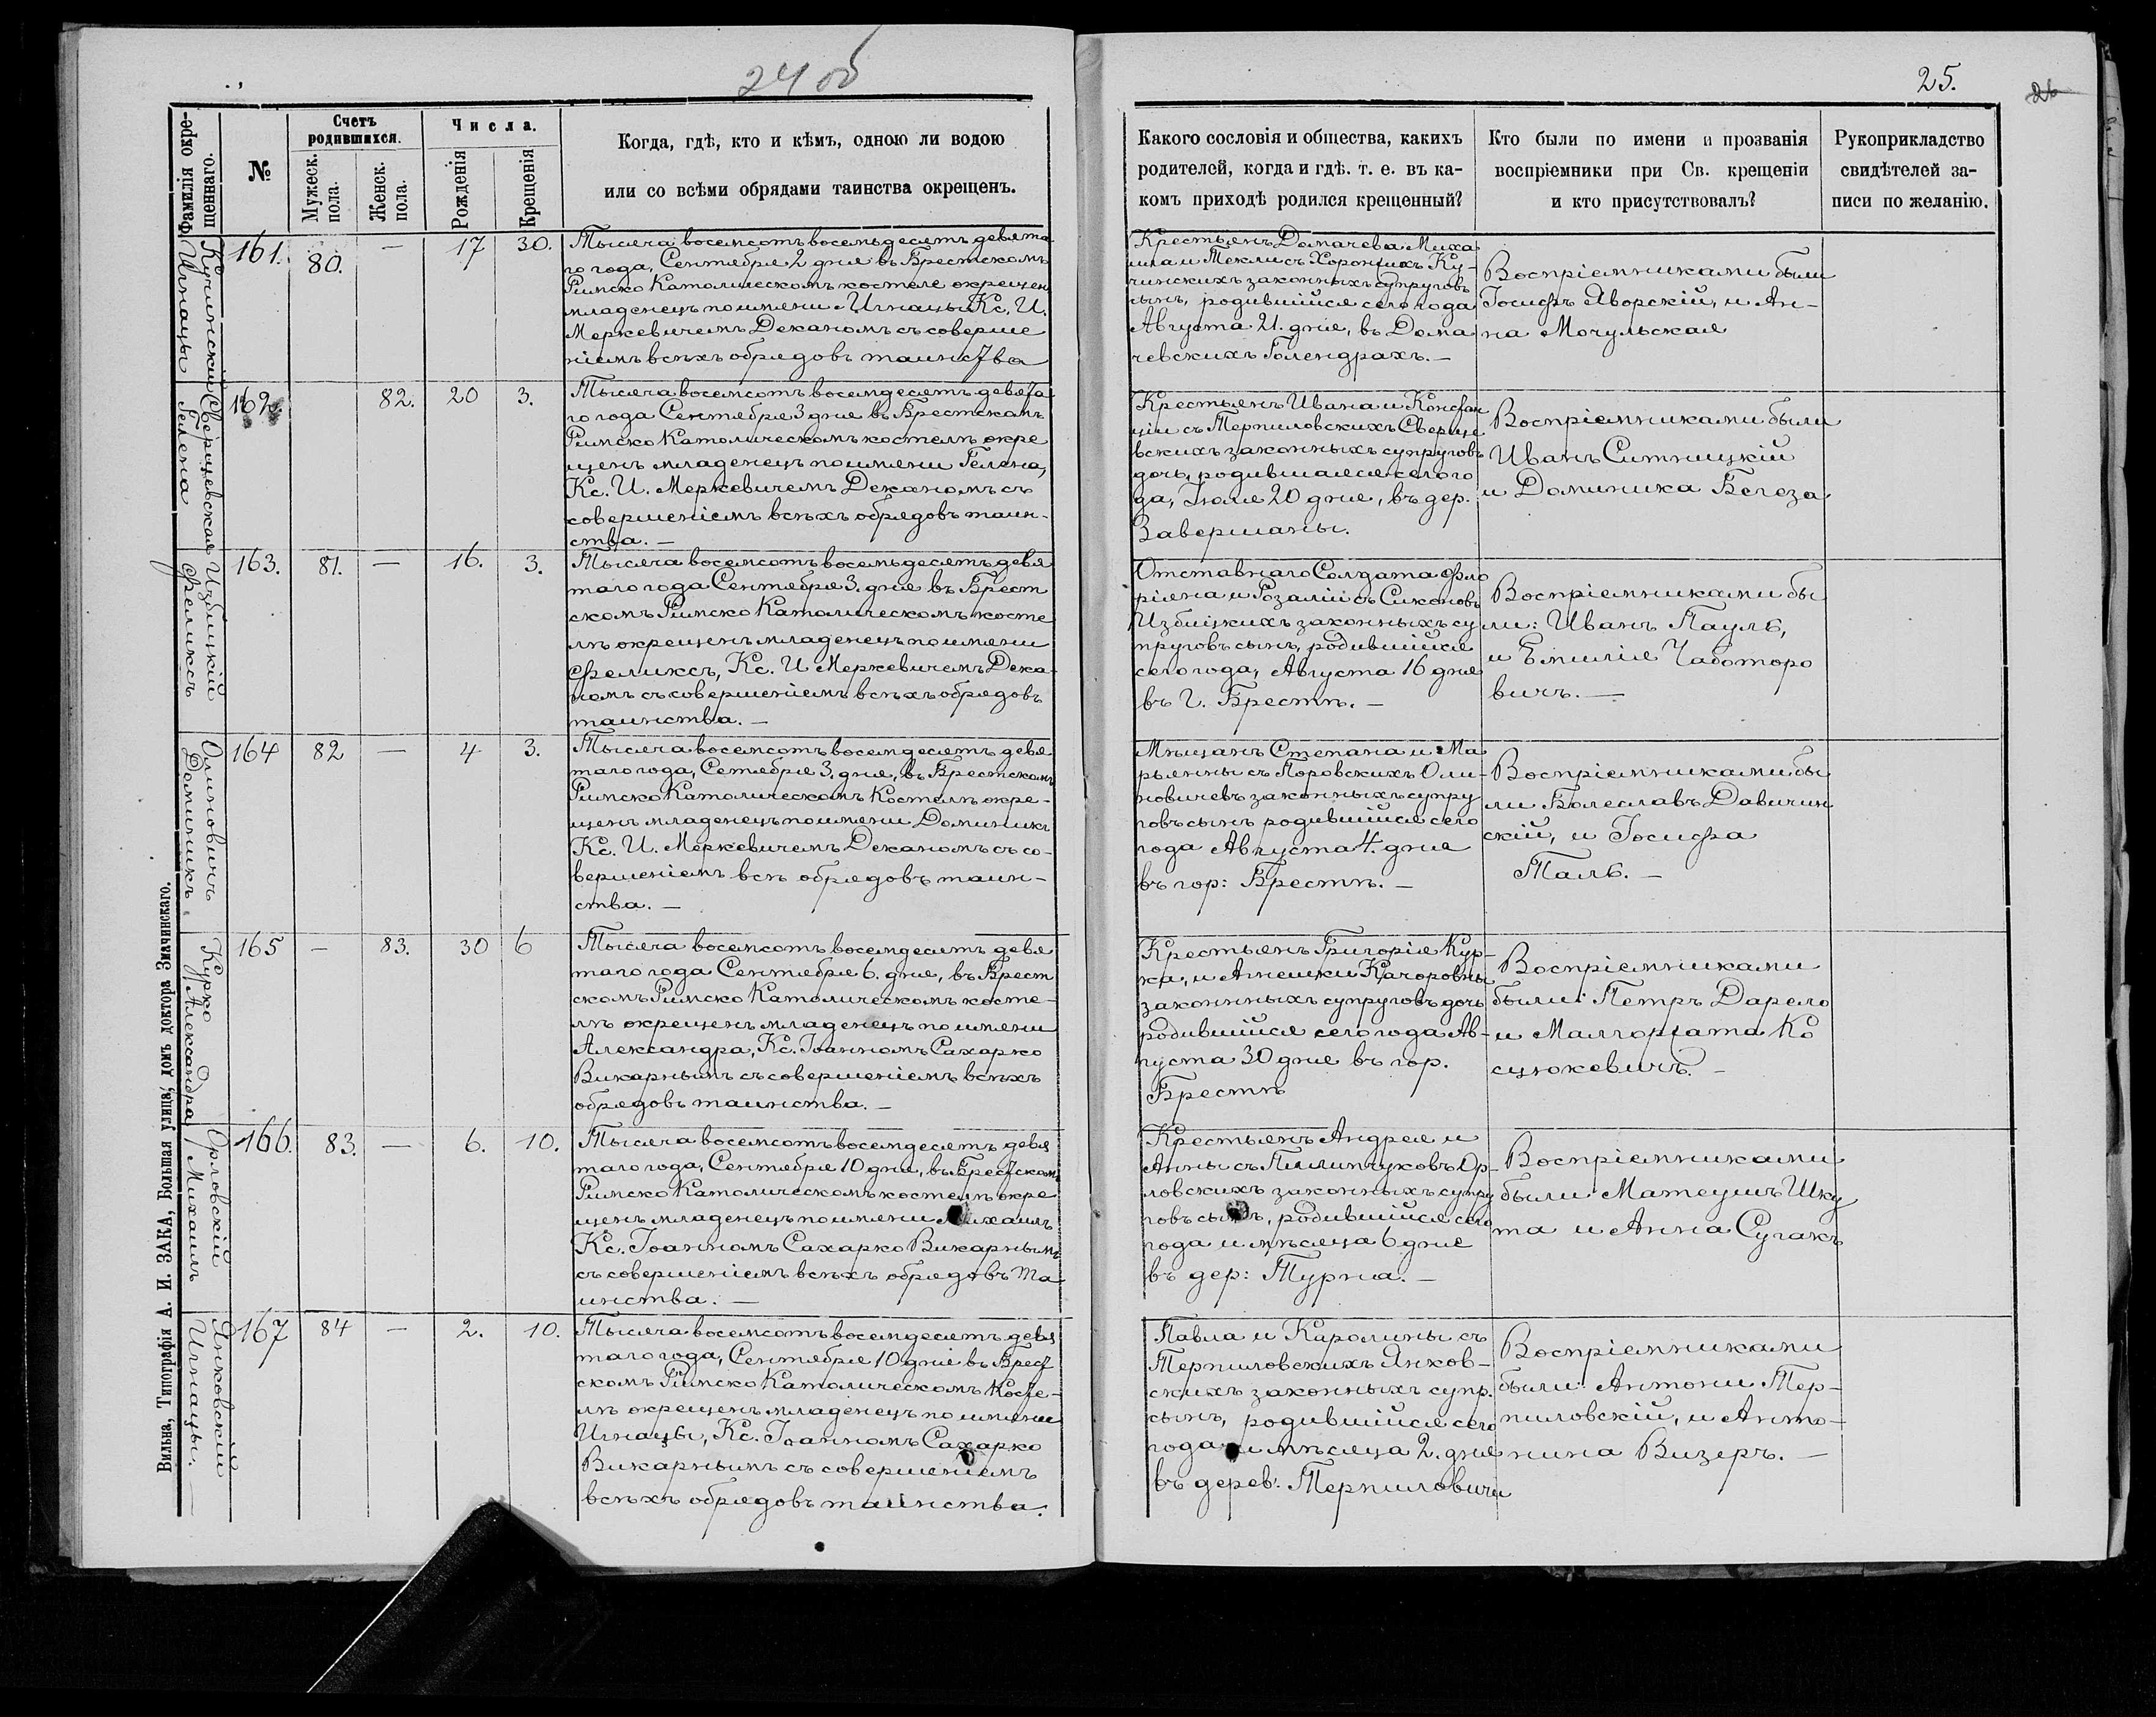 24 об
25.
26
Фамилія окре-
щеннаго.
№
Счетъ
родившихся.
Мужеск.
пола.
Женск.
пола.
Числа.
Рожденія
Крещенія
Когда, гдѣ, кто и кѣмъ, одною ли водою
или со всѣми обрядами таинства окрещенъ.
Какого сословія и общества, какихъ
родителей, когда и гдѣ. т. е. въ ка-
комъ приходѣ родился крещенный?
Кто были по имени и прозванія
воспріемники при Св. крещеніи
и кто присутствовалъ?
Рукоприкладство
свидѣтелей за-
писи по желанію.
Кучинскій
Игнацы
161.
80.
—
17
30.
Тысяча восемсотъ восемьдесятъ девята
го года, Сентября 2 дня въ Брестскомъ
Римско Католическомъ костеле окрещен
младенецъ по имени Игнацы Кс. И.
Меркевичемъ Деканомъ съ соверше
ніемъ всѣхъ обрядовъ таинства
Крестьянъ Домачева Миха
ила и Теклисъ Хоронжихъ Ку-
чинскихъ законныхъ супруговъ
сынъ, родившійся сего года
Августа 21. дня, въ Дома
чевскихъ Голендрахъ. —
Воспріемниками были
Іосифъ Яворскій, и Ан-
на Мочульская
Сверщевская
Гелена
162.
82.
20
3.
Тысяча восемсотъ восемдесятъ девята
го года Сентября 3 дня въ Брестскомъ
Римско Католическомъ костелѣ окре
щенъ младенецъ по имени Гелена,
Кс. И. Меркевичемъ Деканомъ съ
совершеніемъ всѣхъ обрядовъ таин-
ства. —
Крестьянъ Ивана и Констан
ціи съ Терпиловскихъ Сверще
вскихъ законныхъ супруговъ
дочь, родившаяся сего го
да, Іюля 20 дня, въ дер.
Завершаны.
Воспріемниками были
Иванъ Ситницкій
и Доминика Бегеза
Избицкій
Феликсъ
163.
81.
—
16.
3.
Тысяча восемсотъ восемьдесятъ девя
таго года Сентября 3. дня въ Брест
скомъ Римско Католическомъ косте
лѣ окрещенъ младенецъ по имени
Феликсъ, Кс. И Меркевичемъ Дека-
номъ съ совершеніемъ всѣхъ обрядовъ
таинства. —
Отставнаго Солдата Фло
ріяна и Розаліи съ Симоновъ
Избицкихъ законныхъ су
пруговъ сынъ, родившійся
сего года, Августа 16 дня
въ г. Брестѣ. —
Воспріемниками бы
ли: Иванъ Пауль,
и Емилія Чаботоро
вичъ. —
Олиновичъ
Доминикъ
164
82
—
4
3.
Тысяча восемсотъ восемдесятъ девя
таго года, Сетября 3. дня, въ Брестскомъ
Римско Католическомъ Костелѣ окре-
щенъ младенецъ по имени Доминикъ
Кс. И. Меркевичемъ Деканомъ съ со-
вершеніемъ всѣ обрядовъ таин-
ства. —
Мѣщанъ Степана и Ма
рьянны съ Поровскихъ Оли-
новичевъ законныхъ супру
говъ сынъ родившійся сего
года Августа 4. дня
въ гор: Брестѣ. —
Воспріемниками бы
ли Болеславъ Давичин
скій, и Іосифа
Таль. —
Курко
Александра
165
—
83.
30
6
Тысяча восемсотъ восемдесятъ девя
таго года Сентября 6. дня, въ Брест
скомъ Римско Католическомъ косте-
лѣ окрещенъ младенецъ по имени
Александра, Кс. Іоанномъ Сахарко
Викарнымъ съ совершеніемъ всѣхъ
обрядовъ таинства. —
Крестьянъ Григорія Кур-
ка, и Агнешки Качоровны
законныхъ супруговъ дочь
родившійся сего года Ав-
густа 30 дня въ гор.
Брестѣ
Воспріемниками
были: Петръ Дарело
и Малгоржата Ко
сцюкевичъ. —
Орловскій
Михаилъ
166.
83.
—
6.
10.
Тысяча восемсотъ восемдесятъ девя
таго года, Сентября 10 дня, въ Брестскомъ
Римско Католическомъ костелѣ окре
щенъ младенецъ по имени Михаилъ
Кс. Іоанномъ Сахарко Викарнымъ
съ совершеніемъ всѣхъ обрядовъ та
инства. —
Крестьянъ Андрея и
Анны съ Пилипчуковъ Ор-
ловскихъ законныхъ супру
говъ сынъ, родившійся сего
года и мѣсяца 6 дня
въ дер: Турна. —
Воспріемниками
были Матеушъ Шку
та и Анна Сугакъ
Янковскій
Игнацы. —
167
84
—
2.
10.
Тысяча восемсотъ восемдесятъ девя
таго года, Сентября 10 дня въ Брест
скомъ Римско Католическомъ Косте-
лѣ окрещенъ младенецъ по имени
Игнацы, Кс. Іоанномъ Сахарко
Викарнымъ съ совершеніемъ
всѣхъ обрядовъ таинства.
Павла и Каролины съ
Терпиловскихъ Янков-
скихъ законныхъ супр.
сынъ, родившійся сего
года и мѣсяца 2. дня
въ дерев: Терпиловичи
Воспріемниками
были: Антони Тер-
пиловскій, и Анто-
нина Визеръ. —
Вильна, Типографія А. И. ЗАКА, Большая улица, домъ доктора Змачинскаго.